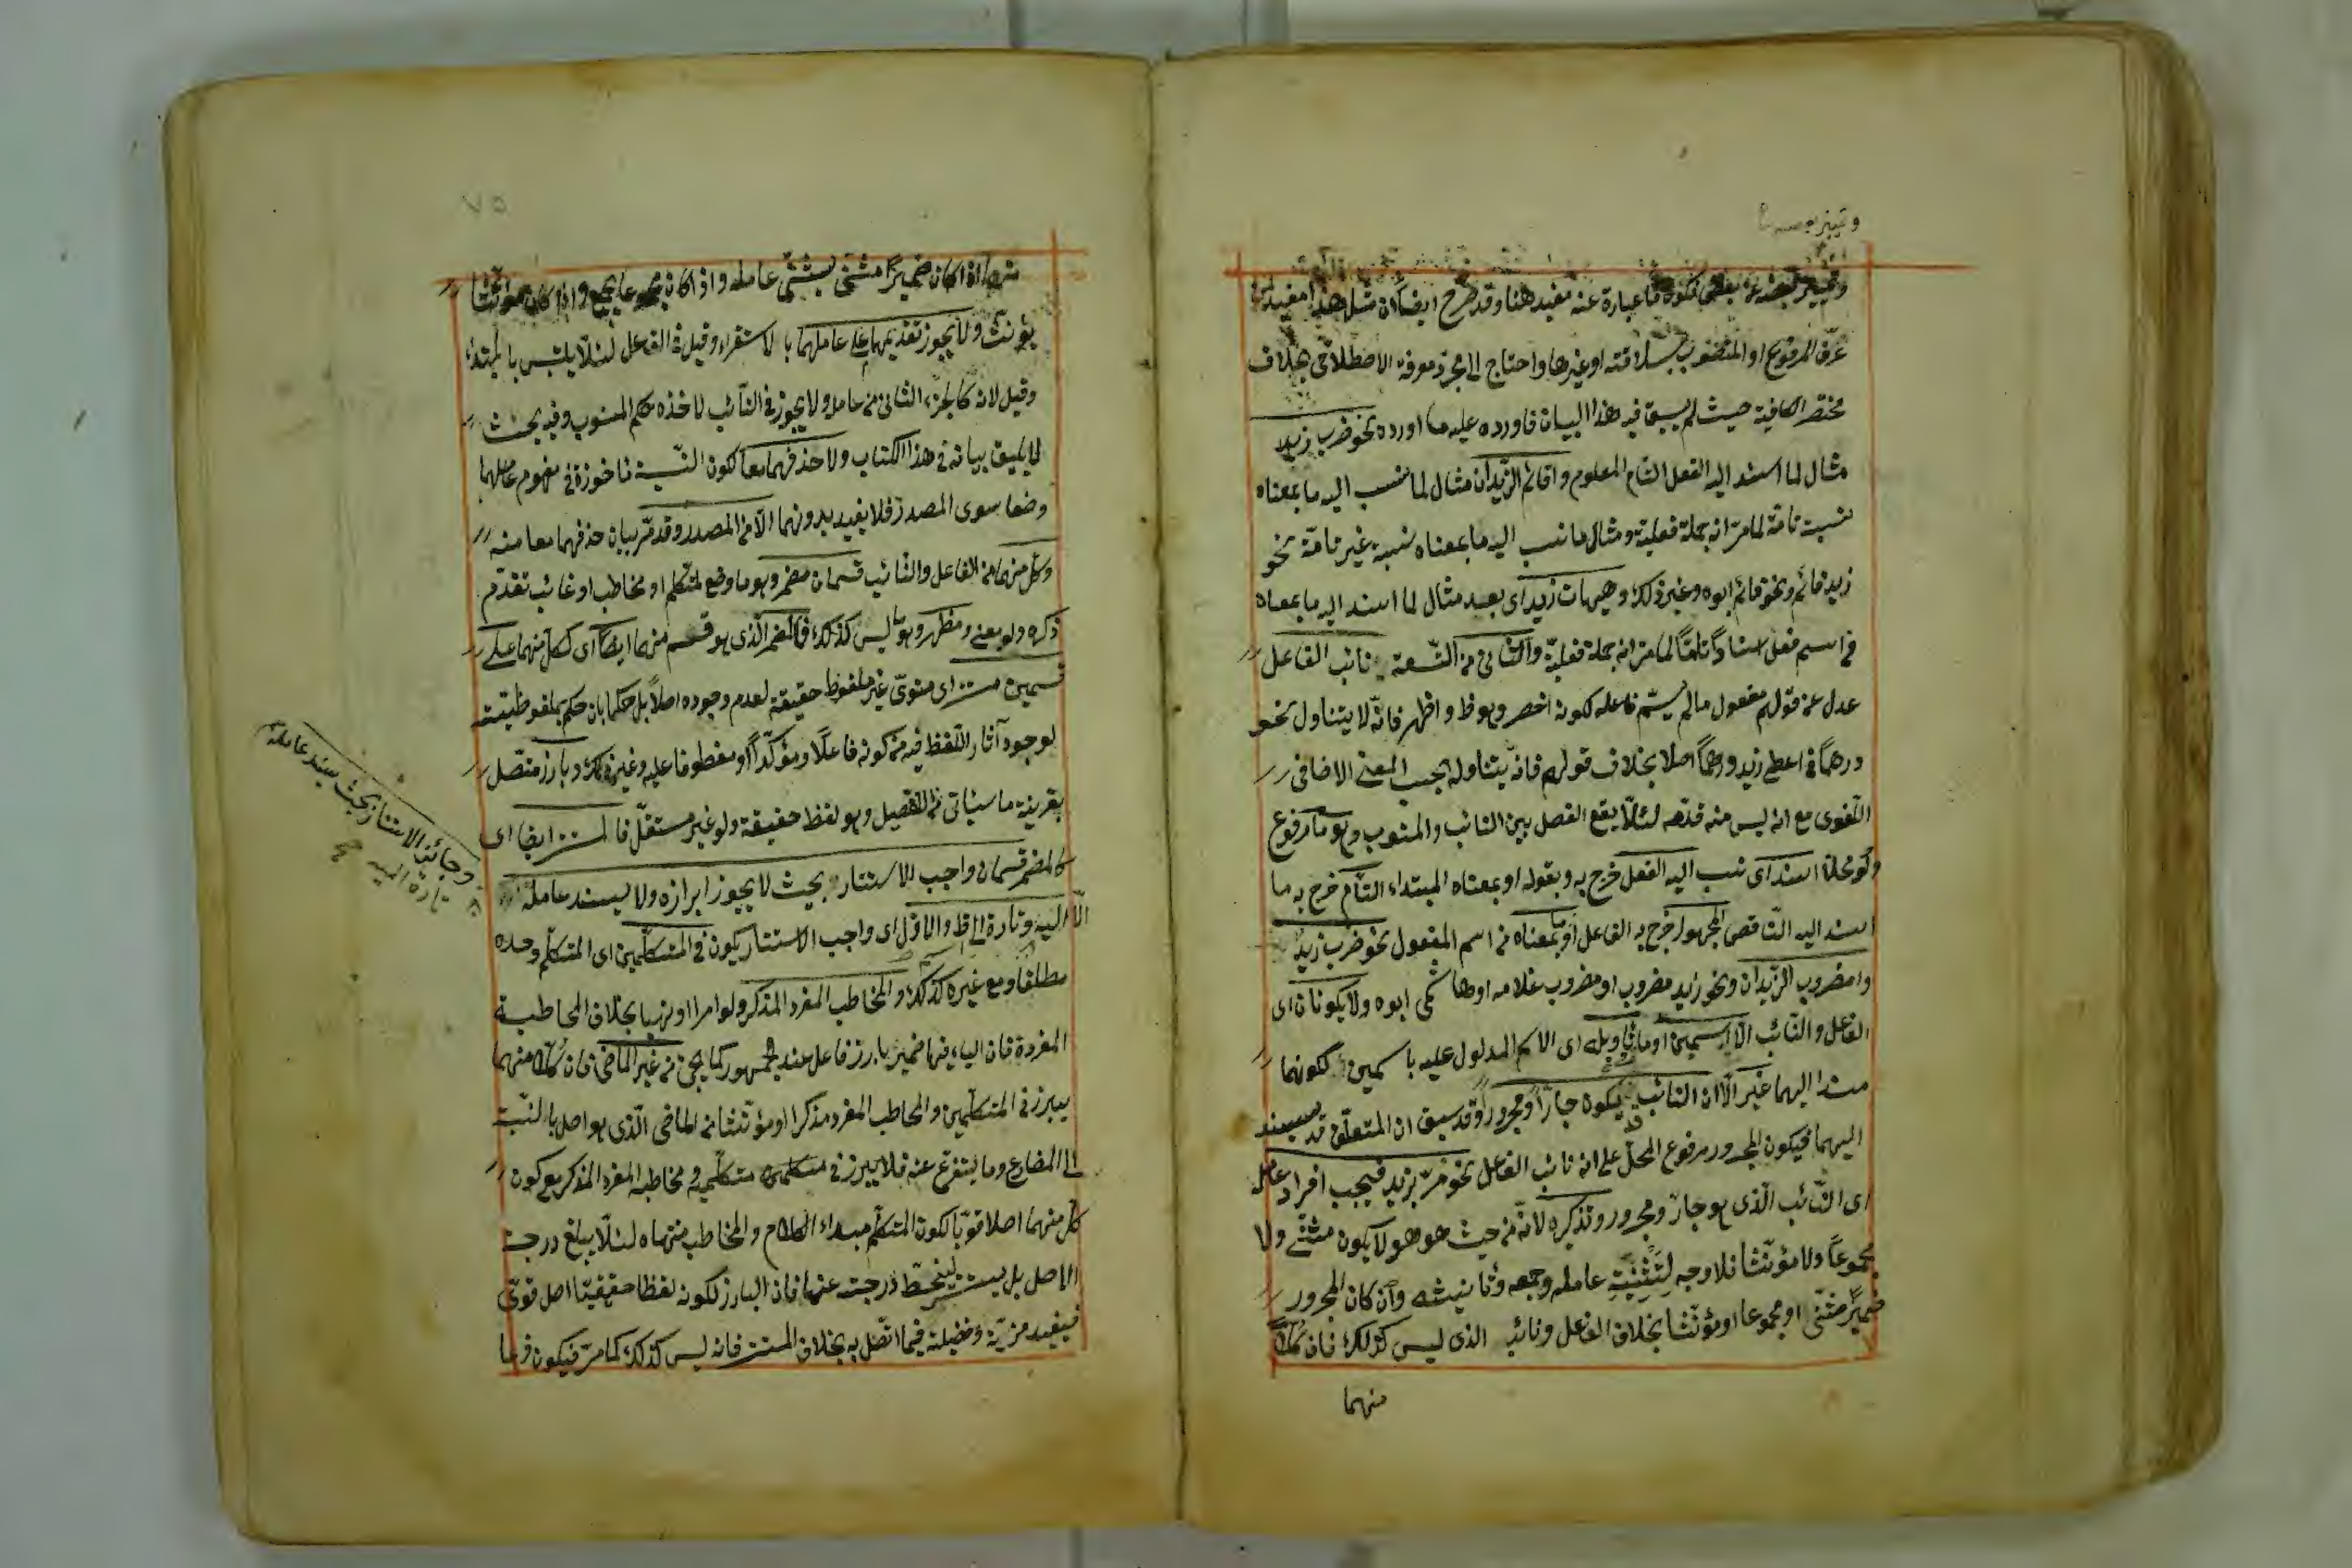 وتميز بعضه
وتمييز بعضه عن بعض لكونه عبارة عنه مفيد هنا وقد صرح ايضا ان مثل هذا مفيد لمن
عرف المرفوع او المنصوب بسلاقته او غيرها واحتاج الى مجرد معرفة الاصطلاحى بخلاف
مختصر الكافية حيث لم يسبق فيه هذا البيان فاورده عليه ما اورده نحو ضرب زيد
مثال لما اسند اليه الفعل التام المعلوم واقائم الزيدان مثال لما نسب اليه ما بمعناه
نسبة تامة لما مر انه جملة فعلية ومثال ما نسب اليه ما بمعناه نسبة غير تامة نحو
زيد قائم ونحو قائم ابوه وغير ذلك وهيهات زيد اى بعد مثال لما اسند اليه ما بمعناه
فى اسم فعل اسنادا تاما لما مر انه جملة فعلية والثانى من التسعة نائب الفاعل
عدل عن قولهم مفعول ما لم يسم فاعله لكونه اخصر وهو ظ واظهر فانه لا يتناول نحو
درهما فى اعطى زيد درهما اصلا بخلاف قولهم فانه يتناوله بحسب المعنى الاضافى
اللغوى مع انه ليس منه قدمه لئلا يقع الفصل بين النائب والمنوب وهو ما مرفوع
ولو محلا اسند اى نسب اليه الفعل خرج به وبقوله او بمعناه المبتداء التام خرج به ما
اسند اليه الناقص المجهول خرج به الفاعل او ما بمعناه من اسم المفعول نحو ضرب زيد
وامضروب الزيدان ونحو زيد مضروب او مضروب غلامه او هاشمى ابوه ولا يكونان اى
الفاعل والنائب الا اسمين او ما فى تاويله اى الاسم المدلول عليه باسمين لكونهما
مسندا اليهما غير الا ان النائب قد يكون جارا ومجرورا وقد سبق ان المتعلق قد يسند
اليهما فيكون المجرور مرفوع المحل على انه نائب الفاعل نحو مر بزيد فيجب افراد عامل
اى النائب الذى هو جار ومجرور وتذكيره لانه من حيث هو هو لا يكون مثنى ولا
مجموعا ولا مؤنثا فلا وجه لتثنية عامله وجمعه وتانيثه وان كان المجرور
ضميرا مثنى او مجموعا او مؤنثا بخلاف الفاعل ونائبه الذى ليس كذلك فان كلا
منهما
٧٥
منهما اذا كان ضميرا مثنى يثنى عامله واذا كان مجموعا يجمع واذا كان مؤنثا
يؤنث ولا يجوز تقديمهما على عاملهما بالاستقراء وقيل فى الفاعل لئلا يلتبس بالمبتداء
وقيل لانه كالجزء الثانى من عامله ولا يجوز فى النائب لاخذه حكم المنوب وفيه بحث
لا يليق بيانه فى هذا الكتاب ولا حذفهما معا لكون النسبة ماخوذة فى مفهوم عاملهما
وضعا سوى المصدر فلا يفيد بدونهما الا من المصدر وقد مر بيان حذفهما معا منه
وكل منهما من الفاعل والنائب قسمان مضمر وهو ما وضع لمتكلم او مخاطب او غائب تقدم
ذكره ولو معنى ومظهر وهو ما ليس كذلك فالمضمر الذى هو قسم منهما ايضا اى ككل منهما على
قسمين مستتر اى منوى غير ملفوظ حقيقة لعدم وجوده اصلا بل حكما بان حكم بملفوظيته
لوجود آثار اللفظ فيه من كونه فاعلا ومؤكدا او معطوفا عليه وغير ذلك وبارز متصل
بقرينة ما سيأتى من التفصيل وهو لفظ حقيقة ولو غير مستقل فالمستتر ايضا اى
كالمضمر قسمان واجب الاستتار بحيث لا يجوز ابرازه ولا يسند عامله
الا اليه وتارة الى ظ والاول اى واجب الاستتار يكون فى المتكلمين اى المتكلم وحده
مطلقا ومع غيره كذلك والمخاطب المفرد المذكر ولو امرا او نهيا بخلاف المخاطبة
المفردة فان الياء فيها ضمير بارز فاعل عند الجمهور كما يجئ من غير الماضى فان كلا منهما
يبرز فى المتكلمين والمخاطب المفرد مذكرا او مؤنثا من الماضى الذى هو اصل بالنسبة
الى المضارع وما يتفرع عنه فلا يبرز فى متكلميه ومخاطبه المفرد المذكر مع كون
كل منهما اصلا قويا لكون المتكلم مبداء الكلام والمخاطب منتهاه لئلا يبلغ درجة
الاصل بل يستتر لينحط درجته عنها فان البارز لكونه لفظا حقيقيا اصل قوى
فيفيد مزية وفضيلة فيما اتصل به بخلاف المستتر فانه ليس كذلك كما مر فيكون فرعا
وجائز الاستتار بحيث يسند عامله
تارة اليه صح